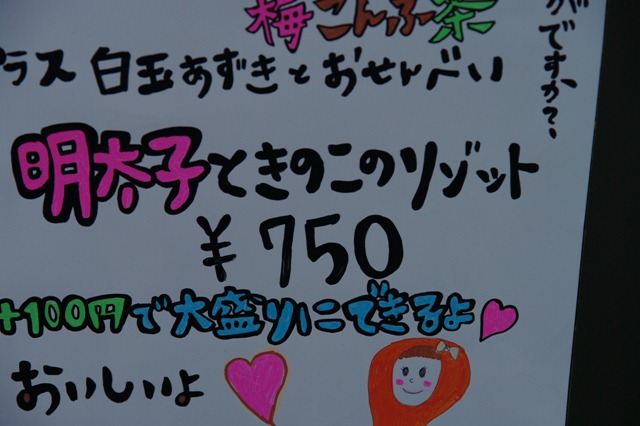 梅こんぶ茶
がですか?
プラス 白玉あずきとおせんべい
明太子ときのこのリゾット
¥750
+100円で大盛りにできるよ
おいしいよ